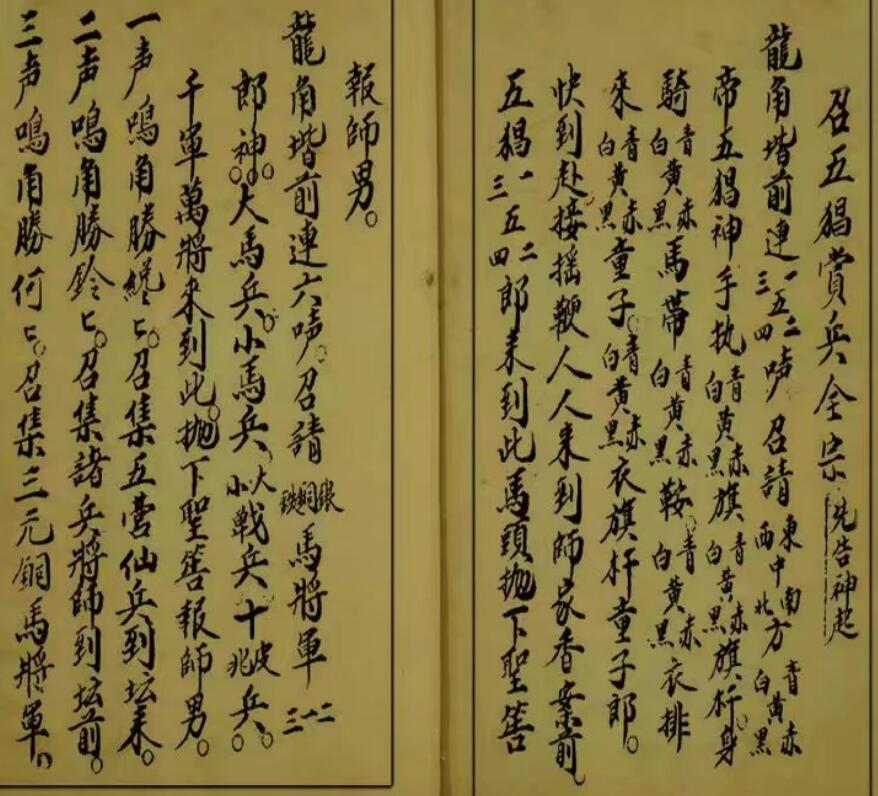 召五猖賞兵全宗 先告神起
龍角堦前連一二三四五声召請東南西北中方青赤白黑黃
帝五猖神手执青赤白黑黃旗青赤白黑黃旗杆身
騎青赤白黑黃馬帶青赤白黑黃鞍青赤白黑黃衣排
來青赤白黑黃童子青赤白黑黃衣旗杆童子郎
快到赴接摇鞭人人来到師家香案前
五猖一二三四五郎来到此馬頭抛下聖筶
報師男
龍角堦前連六声召請銀銅鉄馬將軍一二三
郎神大馬兵小馬兵大小戰兵十兵
千軍萬將来到此抛下聖筶報師男
一声鳴角勝ヒ召集五营仙兵到坛来
二声鳴角勝鈴ヒ召集諸兵將師到坛前
三声鳴角勝何ヒ召集三元銅馬將軍